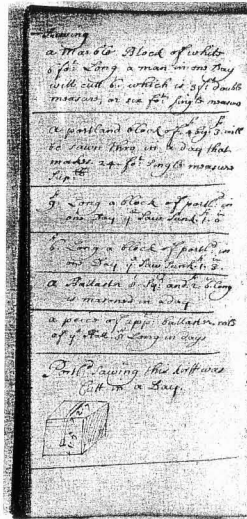 Sawing
a Marble Block of white
6 fot Long a man in one Day
will cutt 6in which is 3 ft double
measure, or six fot single measure
a portland block of 4 by 3 will
be sawn thro in a day that
makes 24 fot single measure
Supll
Long a block of portld in
one Day ye Saw Sunk 1. 0
6 Long a block of portld in
one Day ye Saw Sunk 1. 3
a Ballaster 8 Sqr and 2 6 long
is in a day
a peice of ballaster
of ye Long in days
Portld Sawing this was
Cutt in a Day